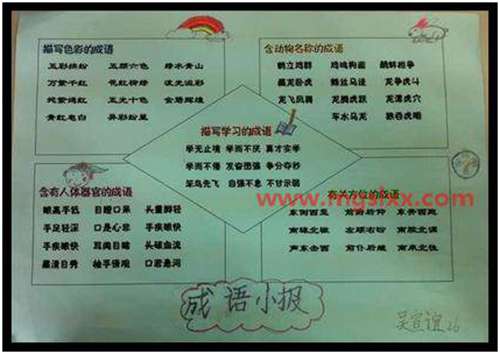 描写色彩的成语
五彩缤纷 五颜六色 绿水青山
万紫千红 花红柳绿 流光溢彩
姹紫嫣红 五光十色 金碧辉煌
青红皂白 异彩纷呈
含动物名称的成语
鹤立鸡群 鸡鸣狗盗 鹬蚌相争
藏龙卧虎 蛛丝马迹 龙争虎斗
龙飞凤舞 龙腾虎跃 龙潭虎穴
车水马龙 狼吞虎咽
描写学习的成语
学无止境 学而不厌 真才实学
学而不倦 发奋图强 争分夺秒
笨鸟先飞 自强不息 不甘示弱
含有人体器官的成语
眼高手低 目瞪口呆 头重脚轻
手足情深 口是心非 手疾眼快
手疾眼快 耳闻目睹 头破血流
眉清目秀 袖手傍观 口若悬河
有关方位的成语
东倒西歪 前俯后仰 东奔西跑
南辕北辙 左顾右盼 南腔北调
声东击西 前仆后继 南来北往
www.mgslxx.com
成语小报
吴宣谊